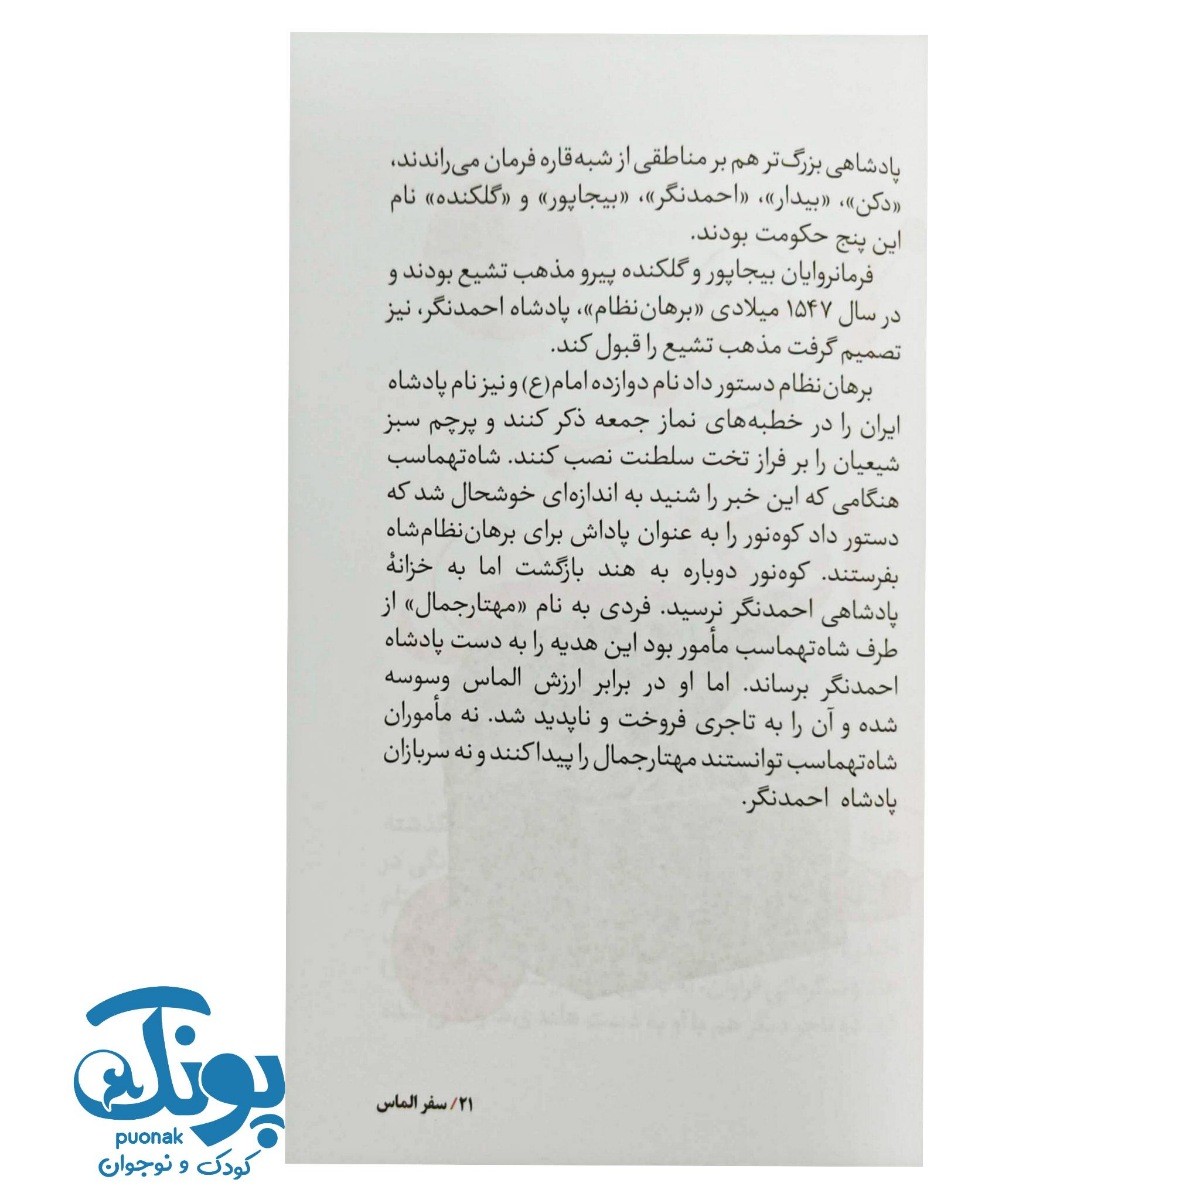 پادشاهی بزرگ‌تر هم بر مناطقی از شبه‌قاره فرمان می‌راندند،
«دکن»، «بیدار»، «احمدنگر»، «بیجاپور» و «گلکنده» نام
این پنج حکومت بودند.
فرمانروایان بیجاپور و گلکنده پیرو مذهب تشیع بودند و
در سال ۱۵۴۷ میلادی «برهان‌نظام»، پادشاه احمدنگر، نیز
تصمیم گرفت مذهب تشیع را قبول کند.
برهان‌نظام دستور داد نام دوازده امام(ع) و نیز نام پادشاه
ایران را در خطبه‌های نماز جمعه ذکر کنند و پرچم سبز
شیعیان را بر فراز تخت سلطنت نصب کنند. شاه‌تهماسب
هنگامی که این خبر را شنید به اندازه‌ای خوشحال شد که
دستور داد کوه‌نور را به عنوان پاداش برای برهان‌نظام‌شاه
بفرستند. کوه‌نور دوباره به هند بازگشت اما به خزانهٔ
پادشاهی احمدنگر نرسید. فردی به نام «مهتارجمال» از
طرف شاه‌تهماسب مأمور بود این هدیه را به دست پادشاه
احمدنگر برساند. اما او در برابر ارزش الماس وسوسه
شده و آن را به تاجری فروخت و ناپدید شد. نه مأموران
شاه‌تهماسب توانستند مهتارجمال را پیدا کنند و نه سربازان
پادشاه احمدنگر.
۲۱/ سفر الماس
پونک
puonak
کودک و نوجوان